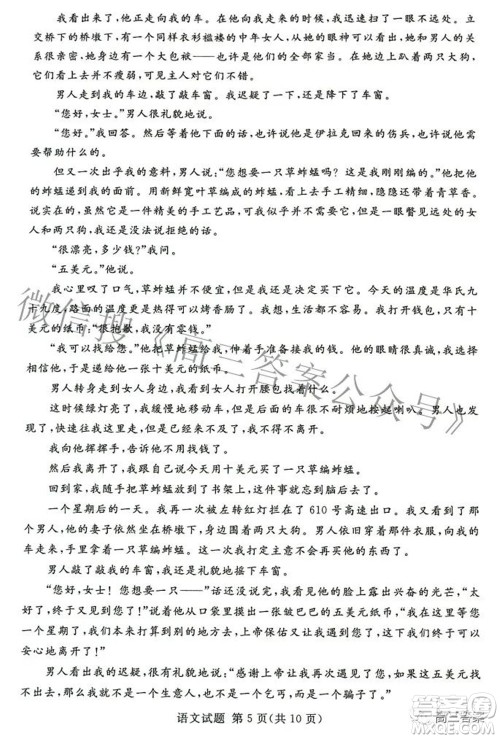 我看出来了，他正走向我的车。在他向我走来的时候，我迅速扫了一眼不远处，立
交桥下的桥墩下，有一个同样衣衫褴褛的中年女人，从她的眼神可以看出，她和男人的
关系很亲密，女人的身边有一个大包袱——也许是他们的全部家当。在她边上趴着两大狗，
它们看上去并不瘦弱，可见主人对它们不错。
男人走到我的车旁，敲了敲车窗。我迟疑了一下，还是摇下了车窗。
“您好，女士。”男人很礼貌地说。
“你好。”我回答。然后等着他告诉我他是伊拉克回来的伤兵，也许他需要
帮助什么的。
但又一次出乎我的意料，男人说：“您想要一只草蚱蜢吗？这是我刚刚编的。”他手
中的蚱蜢大约有三英寸长，用新鲜宽叶草编成的蚱蜢看上去手工精细，散发着青草香。
说实在的，我觉得它是一件精美的手工艺品，可我并不想要它。但是一眼瞥见远处的女
人和两只狗，我还是没法说拒绝的话。
“很漂亮，多少钱？”我问。
“五美元。”他说。
我心里叹了口气，草蚱蜢并不便宜，但我还是决定买。今天的温度是华氏九
十九度，路面的温度更是热得可以烤香肠了。我想，生活都不容易。我打开钱包，只有十
美元的纸币：“很抱歉，我没有零钱。”
“我可以找您的。”他把草蚱蜢给我，伸着手准备接钱。他的眼睛很真诚，我选择
相信他，于是递给他一张十美元的纸币。
男人转身走到女人身边，我看到女人打开腰包找着什么。
这时候绿灯亮了，我还看到后面的车很不耐烦地按起喇叭。男人也发现了，
快速往我这边走，但来不及了，后面的车催促不停，我必须离开。
我向他挥挥手，告诉他不用找钱了。
然后我离开了，我跟自己说今天用十美元买了一只草编蚱蜢。
回到家，我随手把草编蚱蜢放到了书架上，这件事就忘到脑后了。
一个星期后的一天，我再一次被左转红灯拦在了 610 号高速出口。我又看到了那个
男人，他的妻子依然坐在桥墩下，身边围着两只大狗。男人依旧穿着那件衣服，向我的
车走来，手里拿着一只草编蚱蜢。
男人敲了敲我的车窗，我礼貌地摇下车窗。
“您好，女士！您想要一只——”话还没说完，我看到他的脸上露出兴奋的光芒，“太
好了，终于可以找给您钱了！”说着他从口袋里摸出一张皱巴巴的五美元纸币，“我在这等了您
一个星期了，我们本来打算到别的地方去，上帝保佑又让我遇到了您，终于可以
安心地离开了！”
男人看出我的迟疑，很有礼貌地说：“感谢上帝让我再次遇见了您，如果这五美元找
不出去，我们是不会安心的，您一定也不愿意相信一个卖草蚱蜢的人是个骗子了。”
语文试题 第 5 页(共 10 页)
微信搜《高三答案公众号》
高三答案